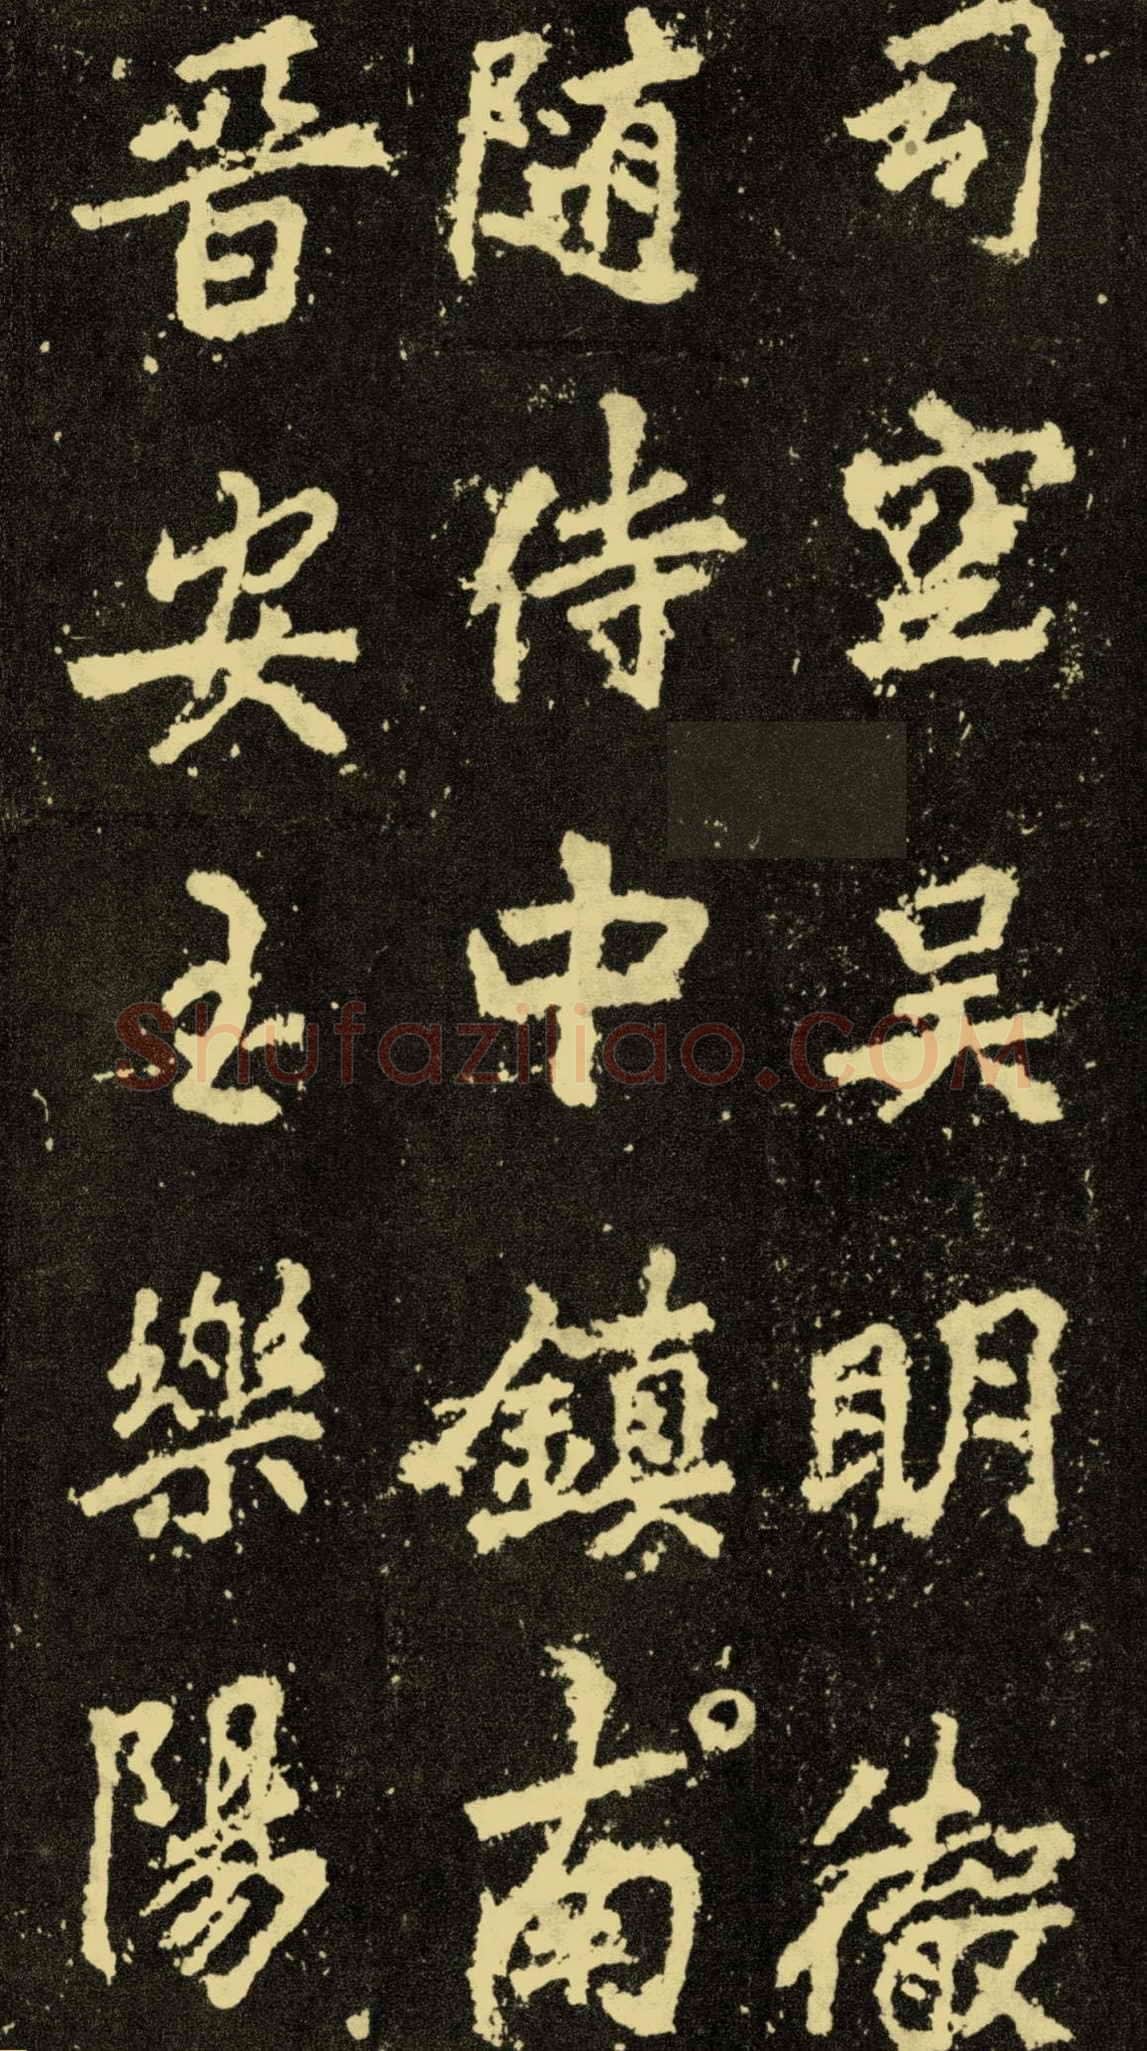 司空吴明徹
随侍中鎮南
晋安王樂陽
Shufaziliao.COM